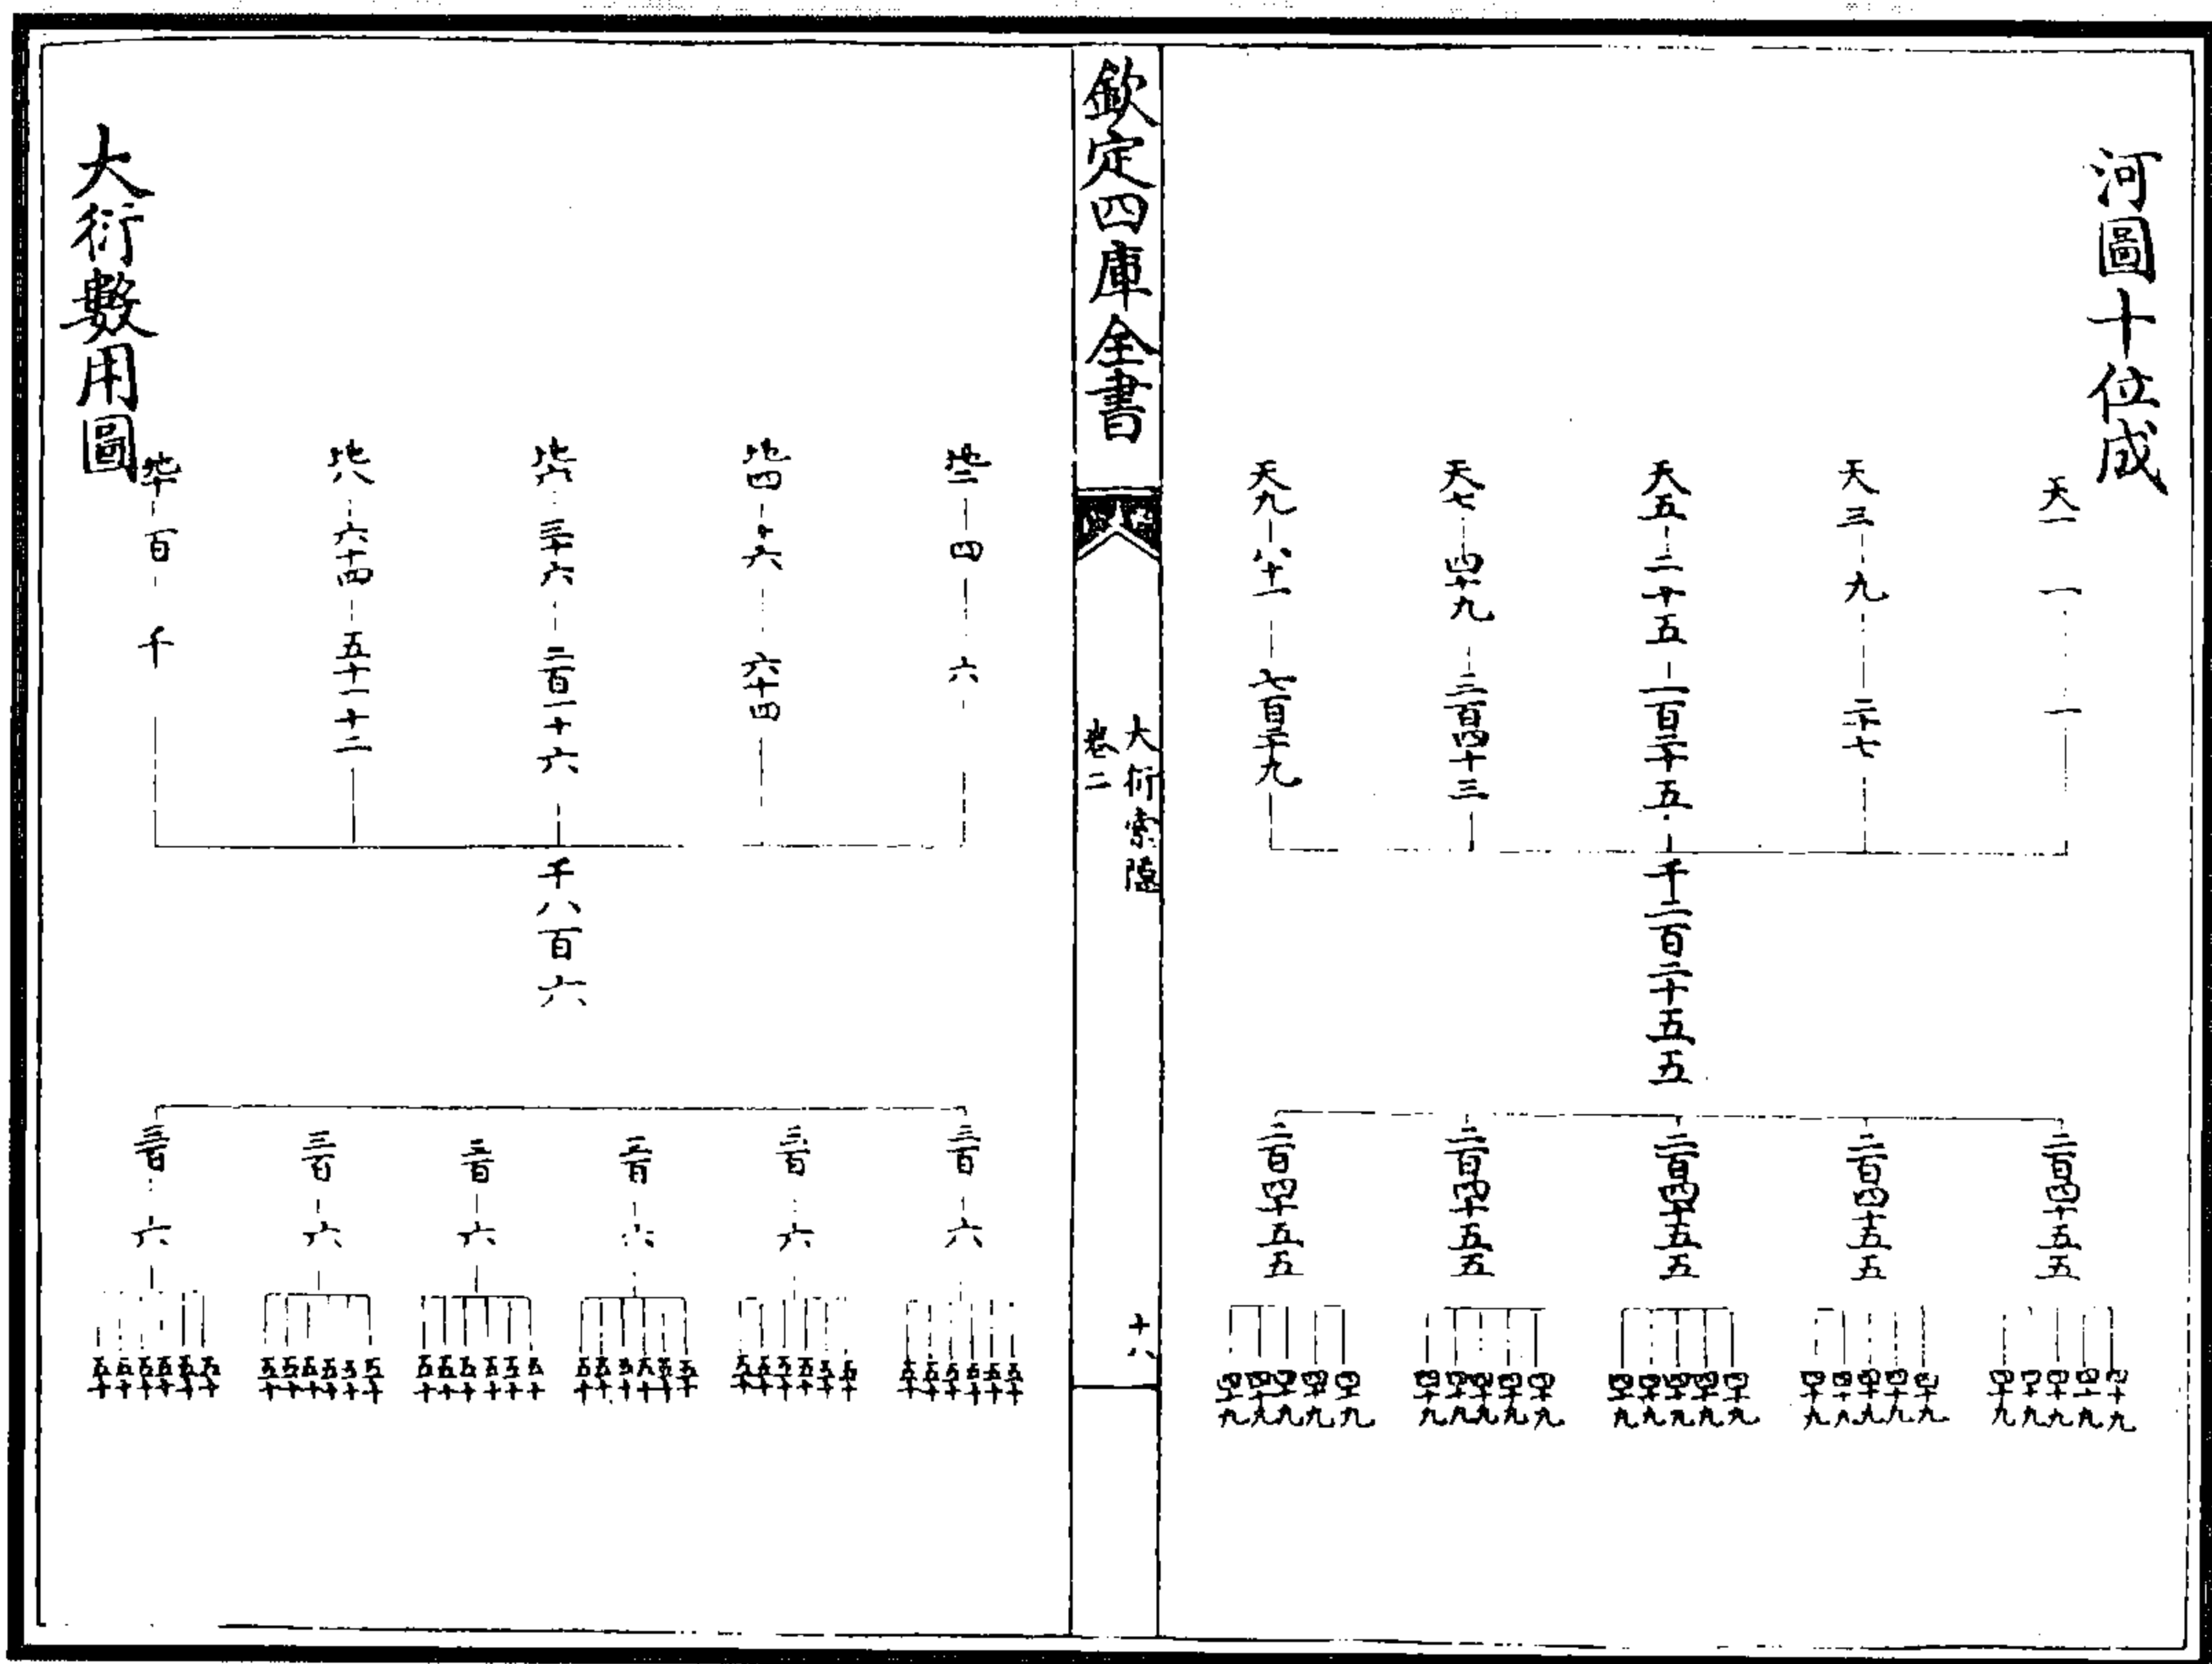 河圖十位成
天一 一 一
天三 九 二十七
天五 二十五 一百二十五
天七 四十九 三百四十三
天九 八十一 七百二十九
千二百二十五五
二百四十五五
四十九 四十九 四十九 四十九 四十九
二百四十五五
四十九 四十九 四十九 四十九 四十九
二百四十五五
四十九 四十九 四十九 四十九 四十九
二百四十五五
四十九 四十九 四十九 四十九 四十九
二百四十五五
四十九 四十九 四十九 四十九 四十九
欽定四庫全書
大衍索隱
卷二
十八
地二 四 六
地四 十六 六十四
地六 三十六 二百一十六
地八 六十四 五十一十二
地十 百 千
千八百六
三百 六
五十 五十 五十 五十 五十 五十
三百 六
五十 五十 五十 五十 五十 五十
三百 六
五十 五十 五十 五十 五十 五十
三百 六
五十 五十 五十 五十 五十 五十
三百 六
五十 五十 五十 五十 五十 五十
三百 六
五十 五十 五十 五十 五十 五十
大衍數用圖